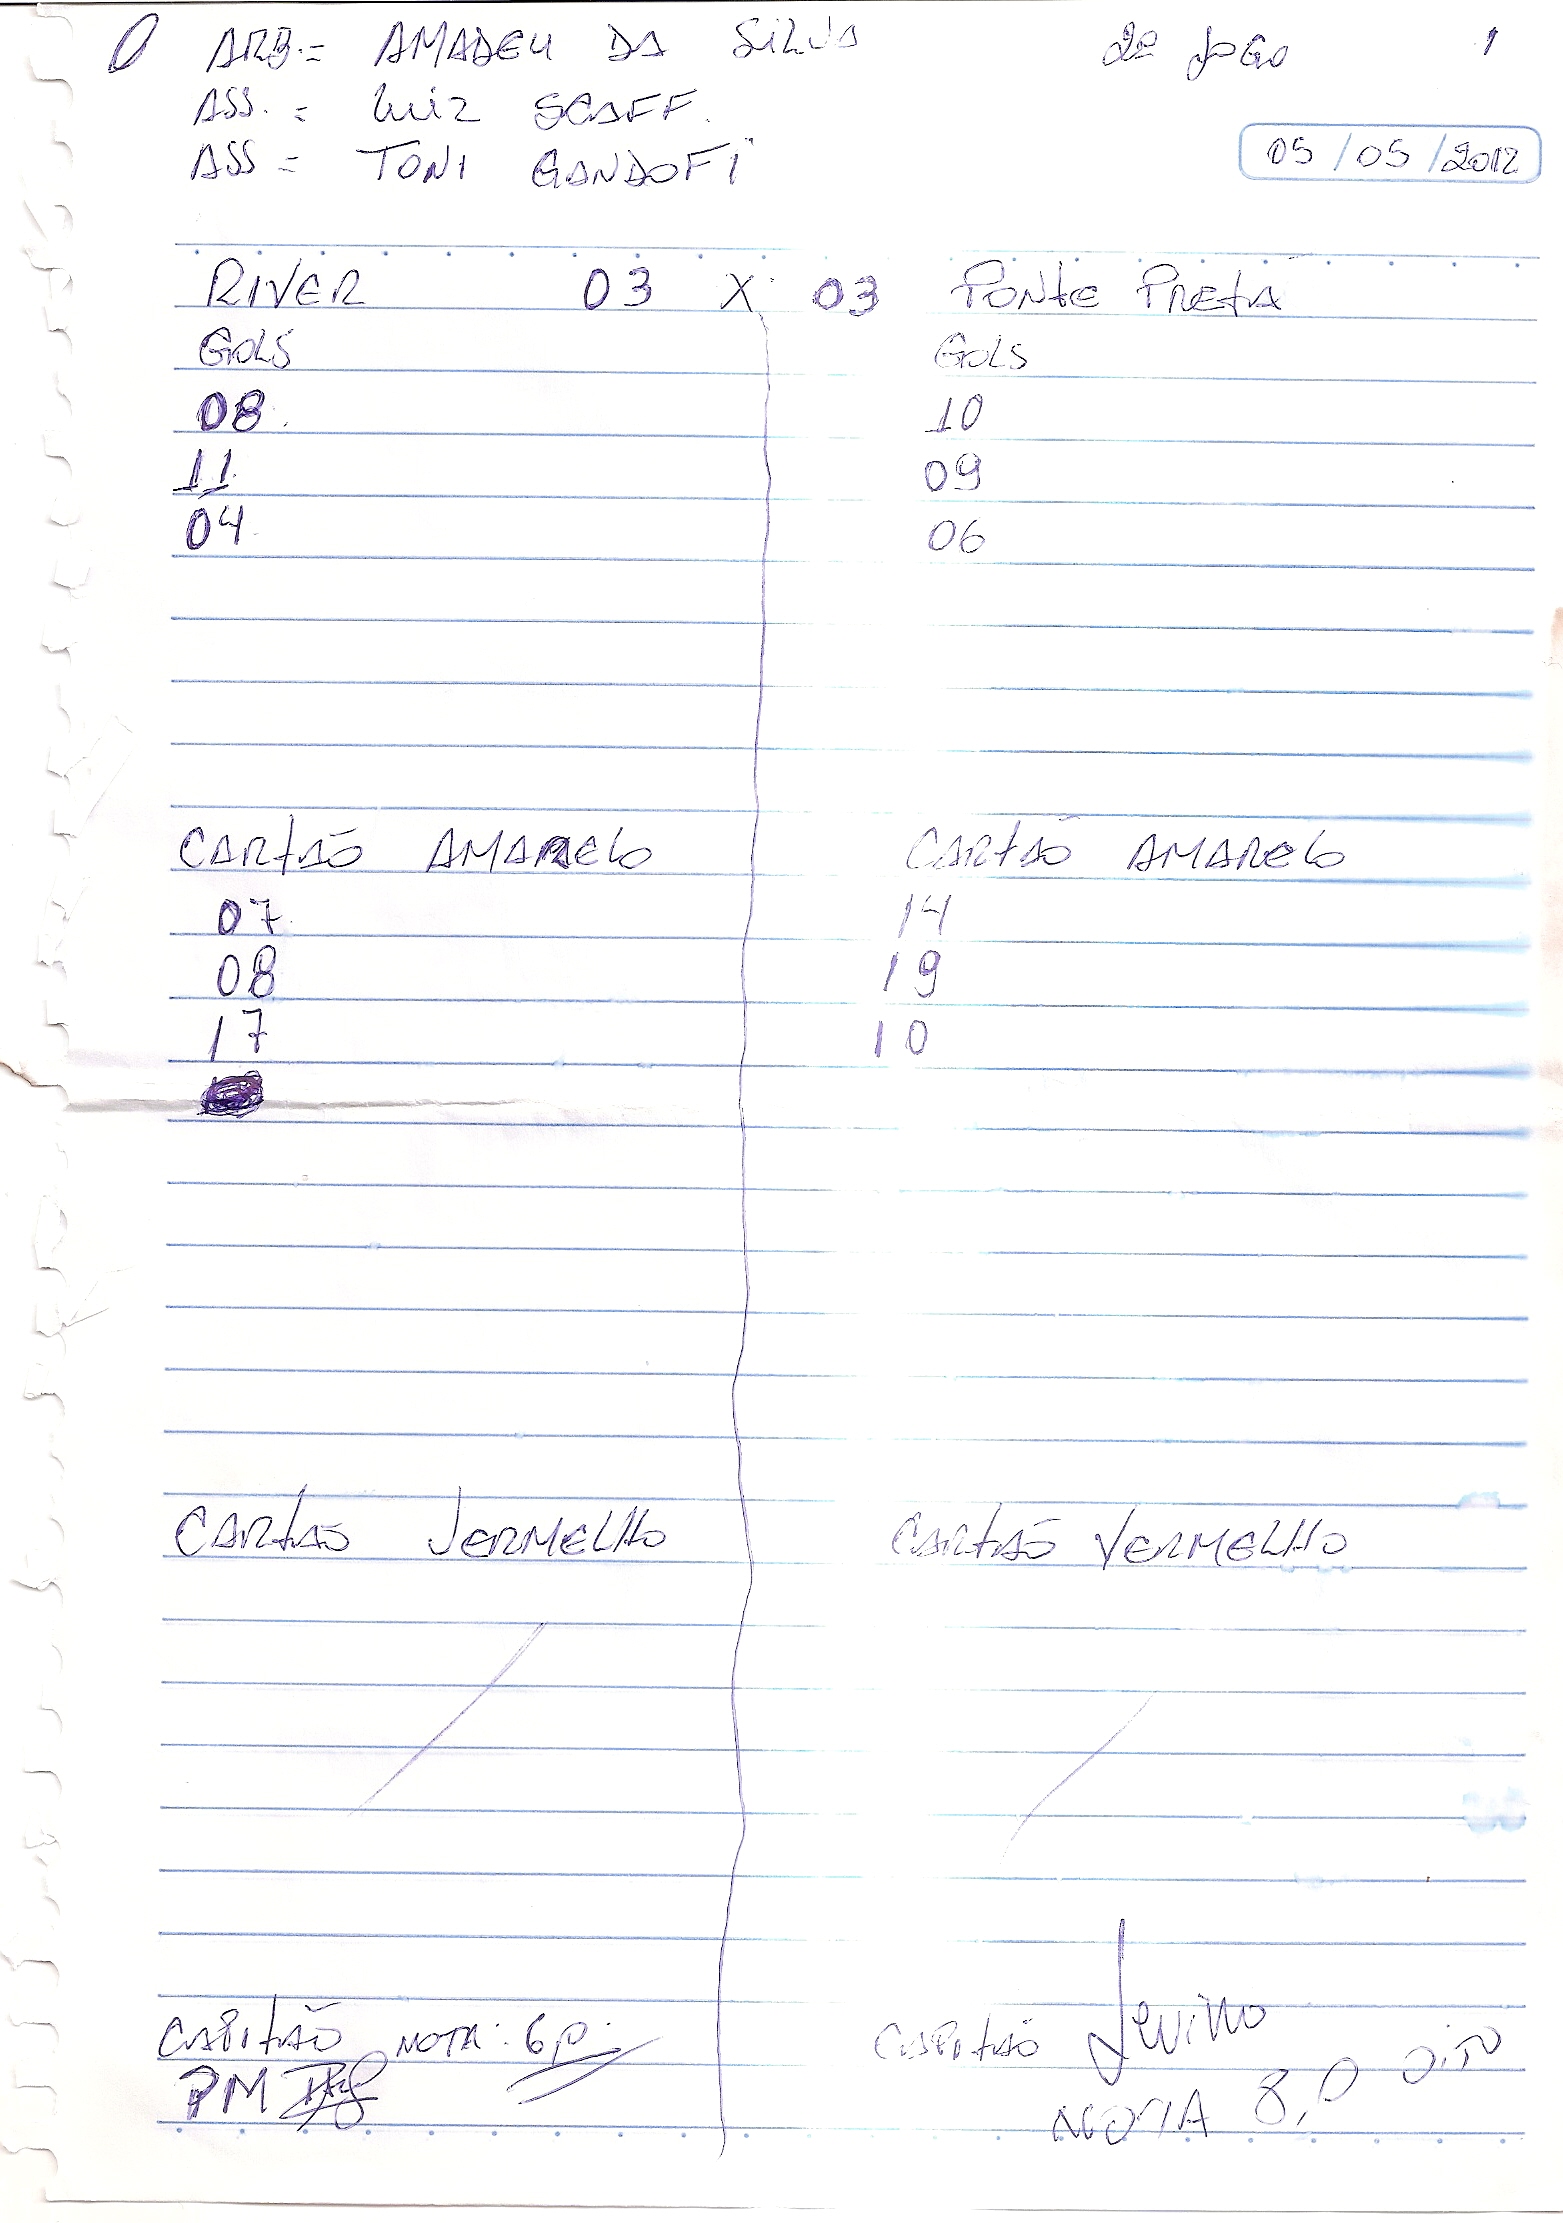 ARB = AMADEU DA SILVA 2º JOGO 1
ASS. = LUIZ SCAFF.
ASS = TONI GANDOFI
05/05/2012
RIVER 03 X 03 PONTE PRETA
GOLS GOLS
08 10
11 09
04 06
CARTÃO AMARELO CARTÃO AMARELO
07 14
08 19
17 10
CARTÃO VERMELHO CARTÃO VERMELHO
CAPITÃO NOTA: 6 CAPITÃO
PM NOTA 8,0 OITO